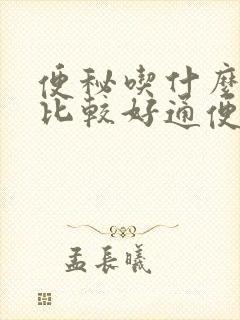 便秘喫什麼
比較好通便
孟長曦